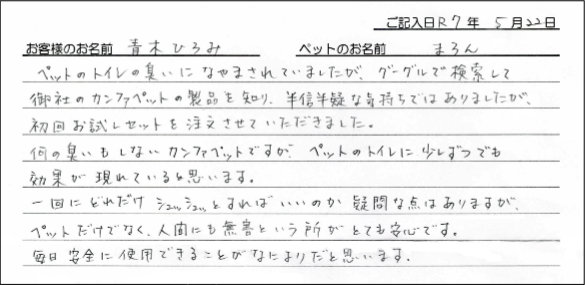 ご記入日R7年 5月22日
お客様のお名前 青木ひろみ ペットのお名前 まろん
ペットのトイレの臭いになやまされていましたが、グーグルで検索して
御社のカンファペットの製品を知り、半信半疑な気持ちではありましたが、
初回お試しセットを注文させていただきました。
何の臭いもしないカンファペットですが、ペットのトイレに少しずつでも
効果が現れていると思います。
一回にどれだけシュッシュッとすればいいのか疑問な点はありますが、
ペットだけでなく、人間にも無害という所がとても安心です。
毎日安全に使用できることがなによりだと思います。